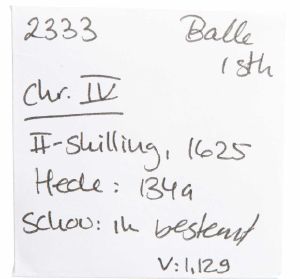 2333 Balle
1 stk
Chr. IV
II-skilling, 1625
Hede: 134a
Schou: ik bestemt
V: 1,129